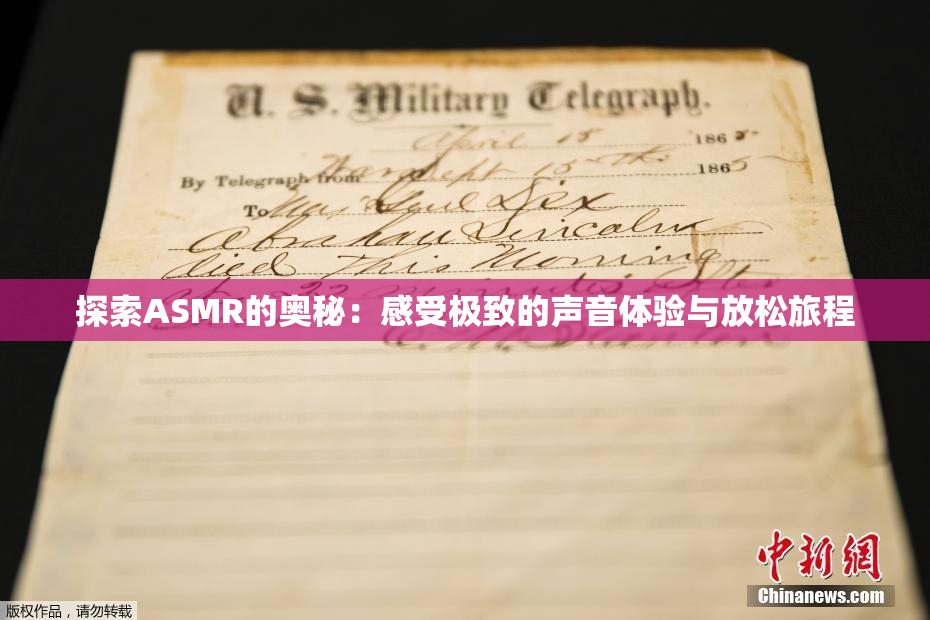 U. S. Military Telegraph.
April 15 1865-
By Telegraph from War Dept 15th 1865
To Maj Genl Dix
Abraham Lincoln
died This Morning
at 22 minutes after
探索ASMR的奥秘：感受极致的声音体验与放松旅程
E. M. Stanton
中新网
Chinanews.com
版权作品，请勿转载